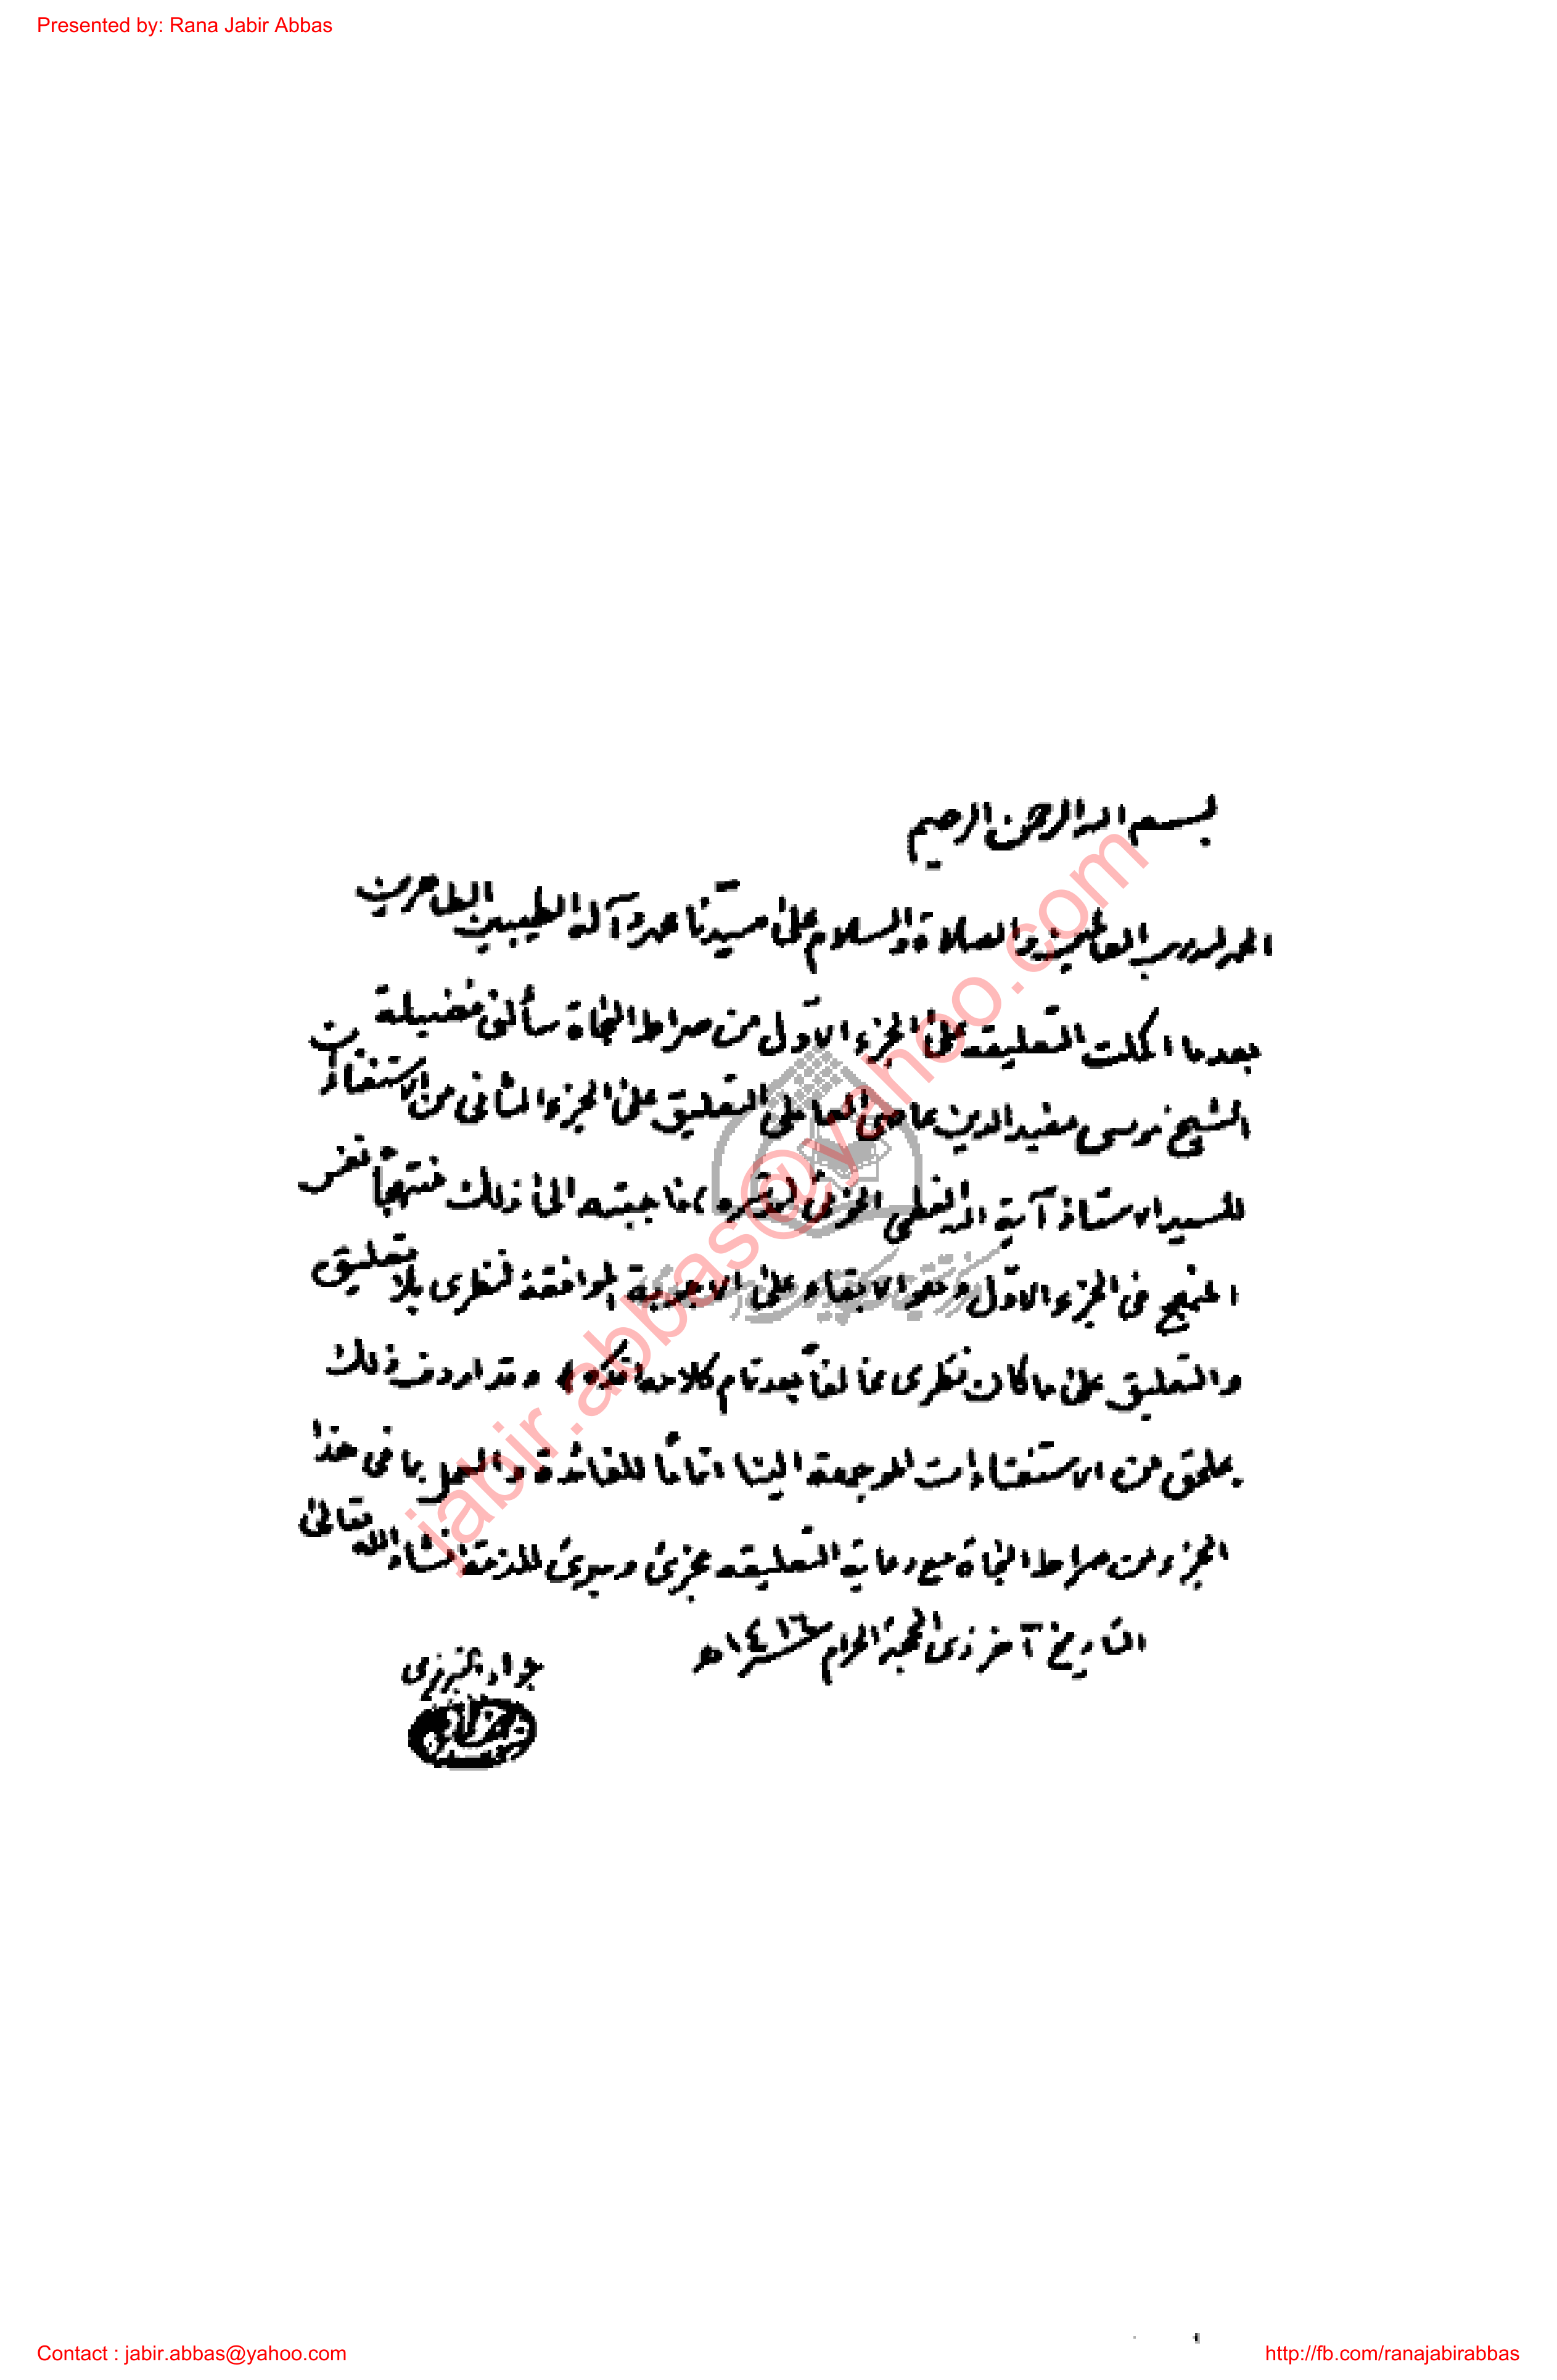 Presented by: Rana Jabir Abbas
بسم الله الرحمن الرحيم
الحمد لله رب العالمين والصلاة والسلام على سيدنا محمد وآله الطيبين الطاهرين
بعدما اكملت التعليقه على الجزء الاوّل من صراط النجاة سألني فضيلة
الشيخ موسى مفيد الدين عاصي العاملي التعليق على الجزء الثاني من الاستفتاءات
للسيد الاستاذ آية الله العظمى الخوئي (قدّس سره) فاجبته الى ذلك منتهجاً نفس
المنهج في الجزء الاوّل وهو الابقاء على الاجوبة الموافقة لنظري بلا تعليق
والتعليق على ما كان نظري مخالفاً بعد تمام كلامه وقد اردف ذلك
بملحق من الاستفتاءات الموجهة الينا اتماماً للفائدة والعمل بما في هذا
الجزء من صراط النجاة مع رعاية التعليقه مجزئ ومبرئ للذمة انشاء الله تعالى
التاريخ آخر ذي الحجة الحرام ١٤١٦ هـ
جواد التبريزي
jabir.abbas@yahoo.com
Contact : jabir.abbas@yahoo.com
http://fb.com/ranajabirabbas